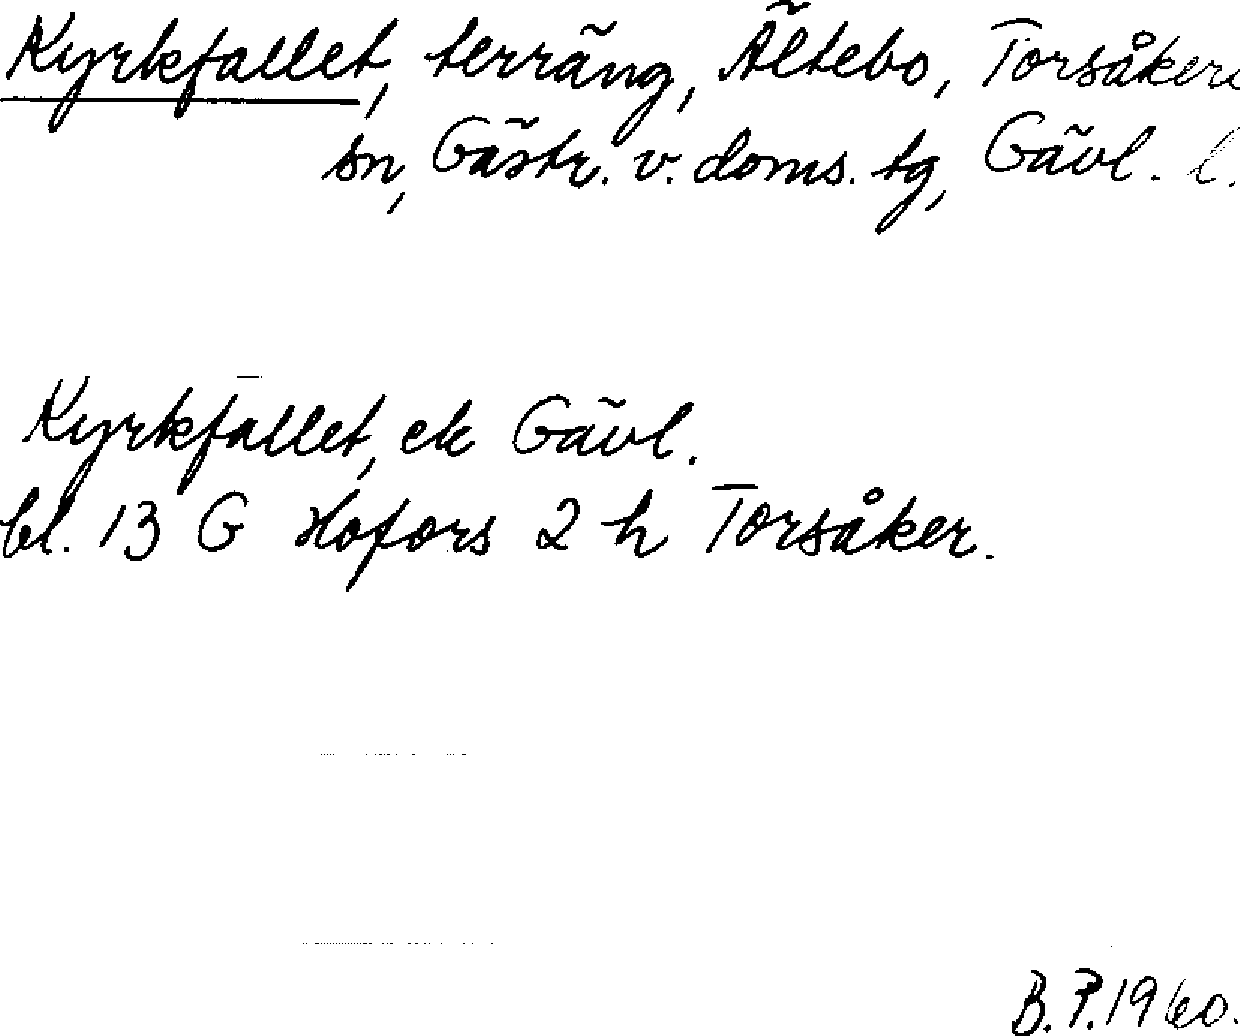 Kyrkfallet, terräng, Ältebo, Torsåkers
sn, Gästr. v. doms. tg, Gävl. l.
Kyrkfallet, ek Gävl.
bl. 13 G Hofors 2 h Torsåker.
B. P. 1960.